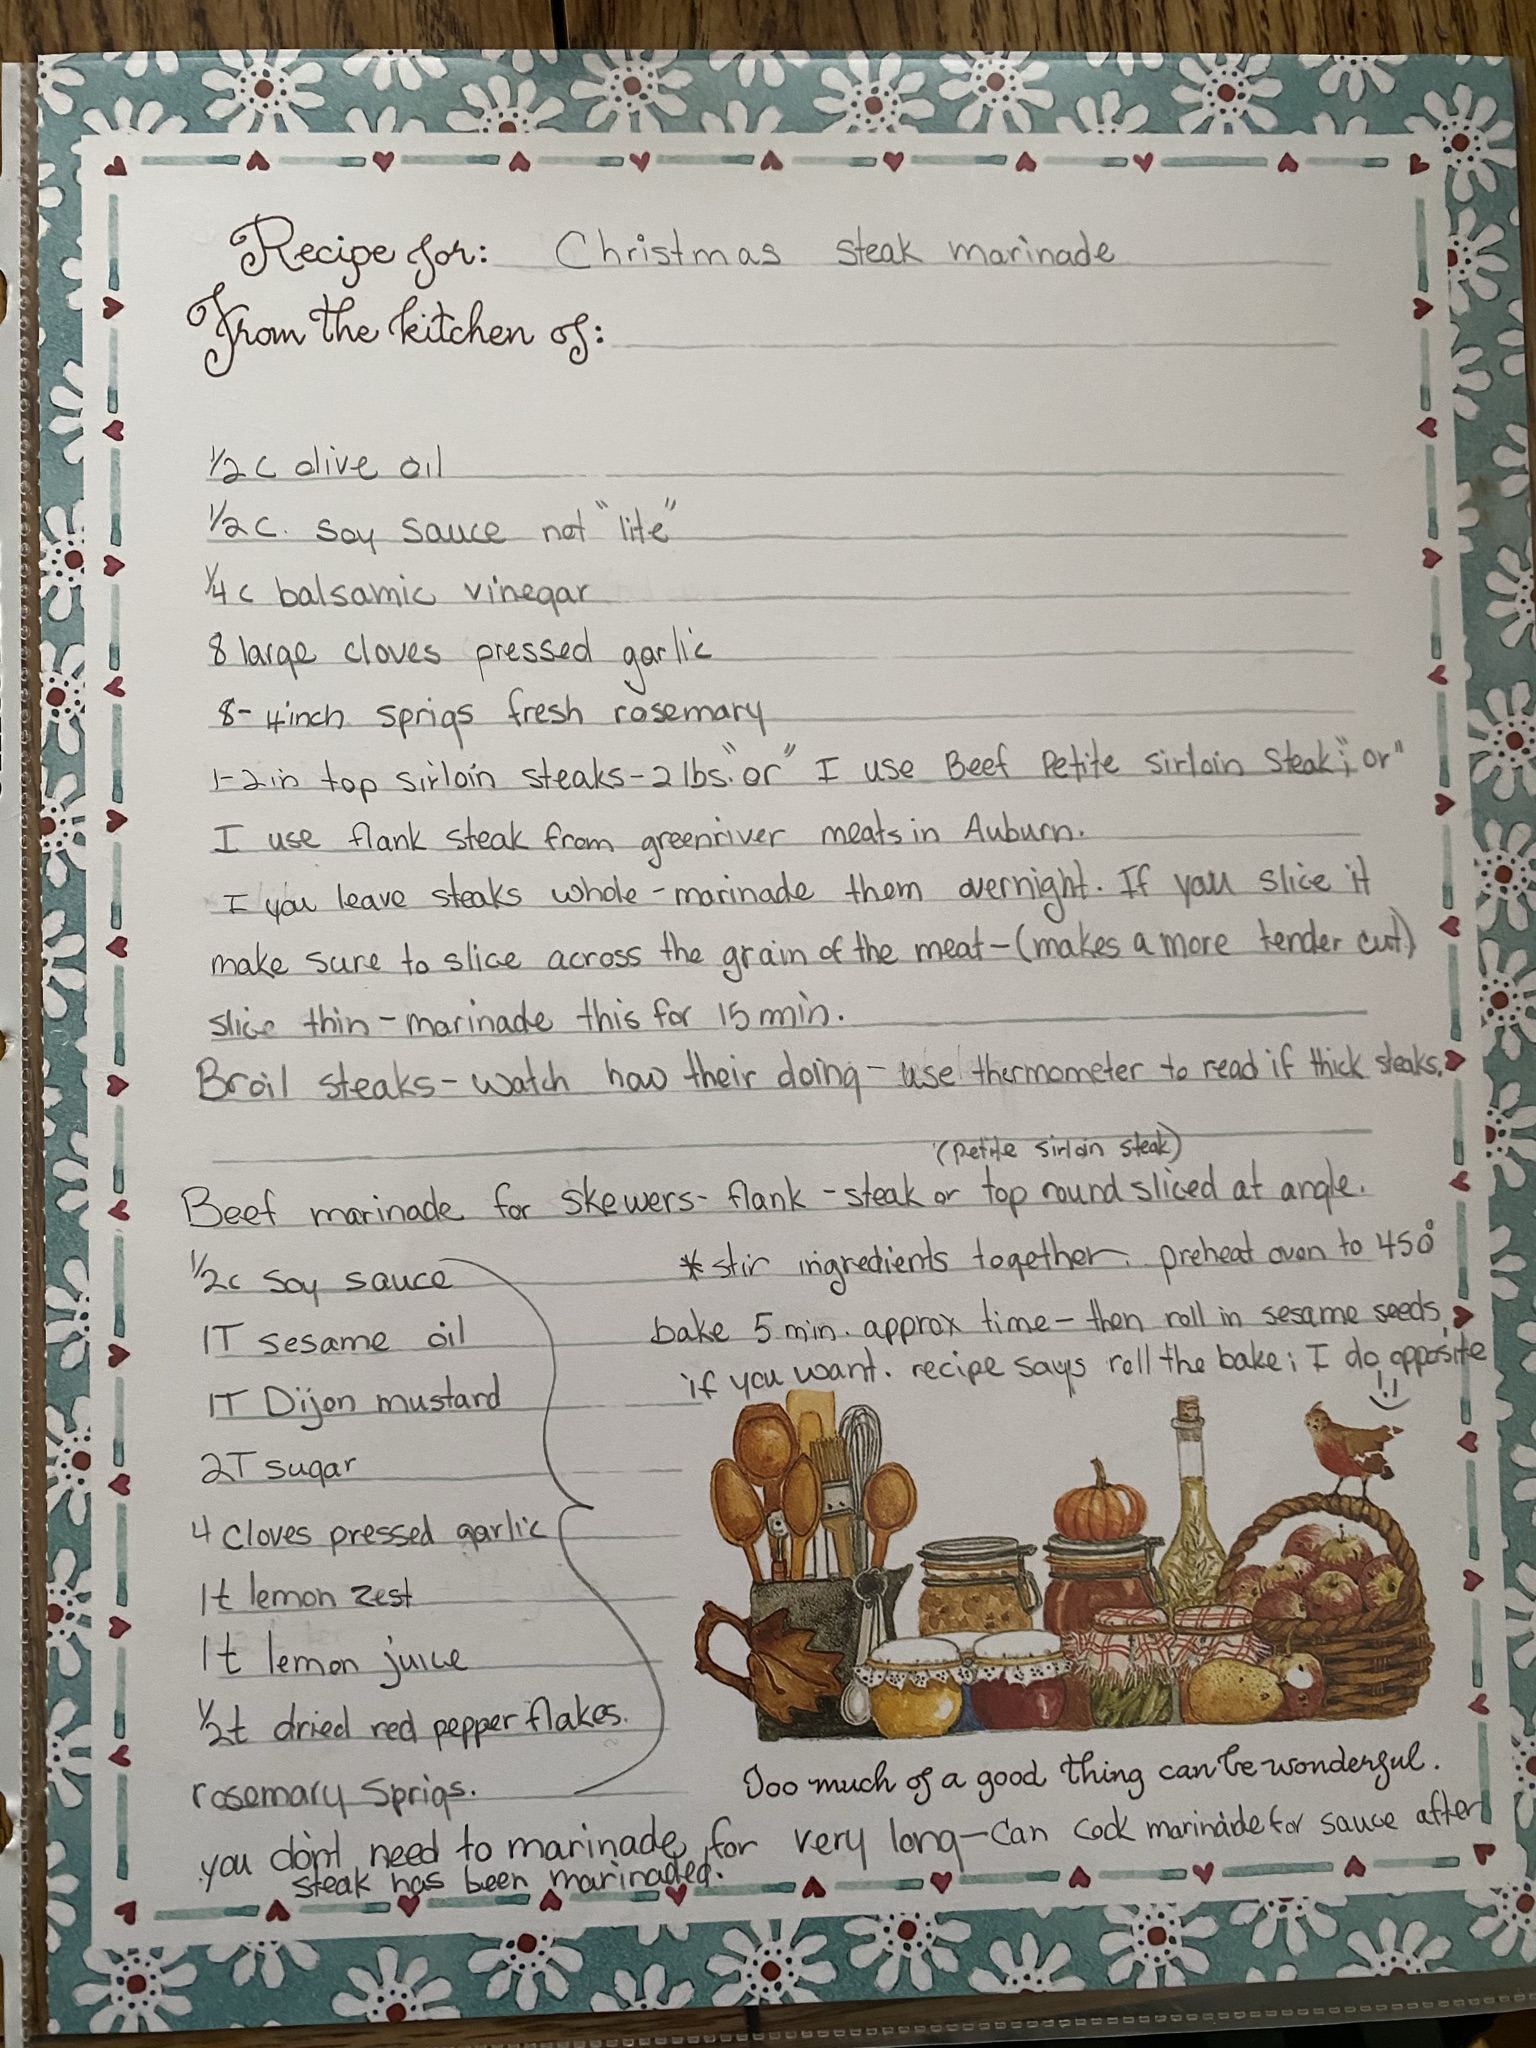 Recipe for: Christmas steak marinade
From the kitchen of:
1/2 c olive oil
1/2 c. soy sauce not "lite"
1/4 c balsamic vinegar
8 large cloves pressed garlic
8 - 4inch sprigs fresh rosemary
1-2in top sirloin steaks - 2 lbs. "or" I use Beef Petite sirloin steak; "or"
I use flank steak from greenriver meats in Auburn.
I you leave steaks whole - marinade them overnight. If you slice it
make sure to slice across the grain of the meat - (makes a more tender cut.)
slice thin - marinade this for 15 min.
Broil steaks - watch how their doing - use thermometer to read if thick steaks.
(Petite sirloin steak)
Beef marinade for skewers - flank - steak or top round sliced at angle.
1/2c soy sauce
1T sesame oil
1T Dijon mustard
2T sugar
4 cloves pressed garlic
1t lemon zest
1t lemon juice
1/2t dried red pepper flakes.
rosemary sprigs.
* stir ingredients together. preheat oven to 450°
bake 5 min. approx time - then roll in sesame seeds,
if you want. recipe says roll the bake; I do opposite
Too much of a good thing can be wonderful.
you don't need to marinade for very long - can cook marinade for sauce after
steak has been marinaded.